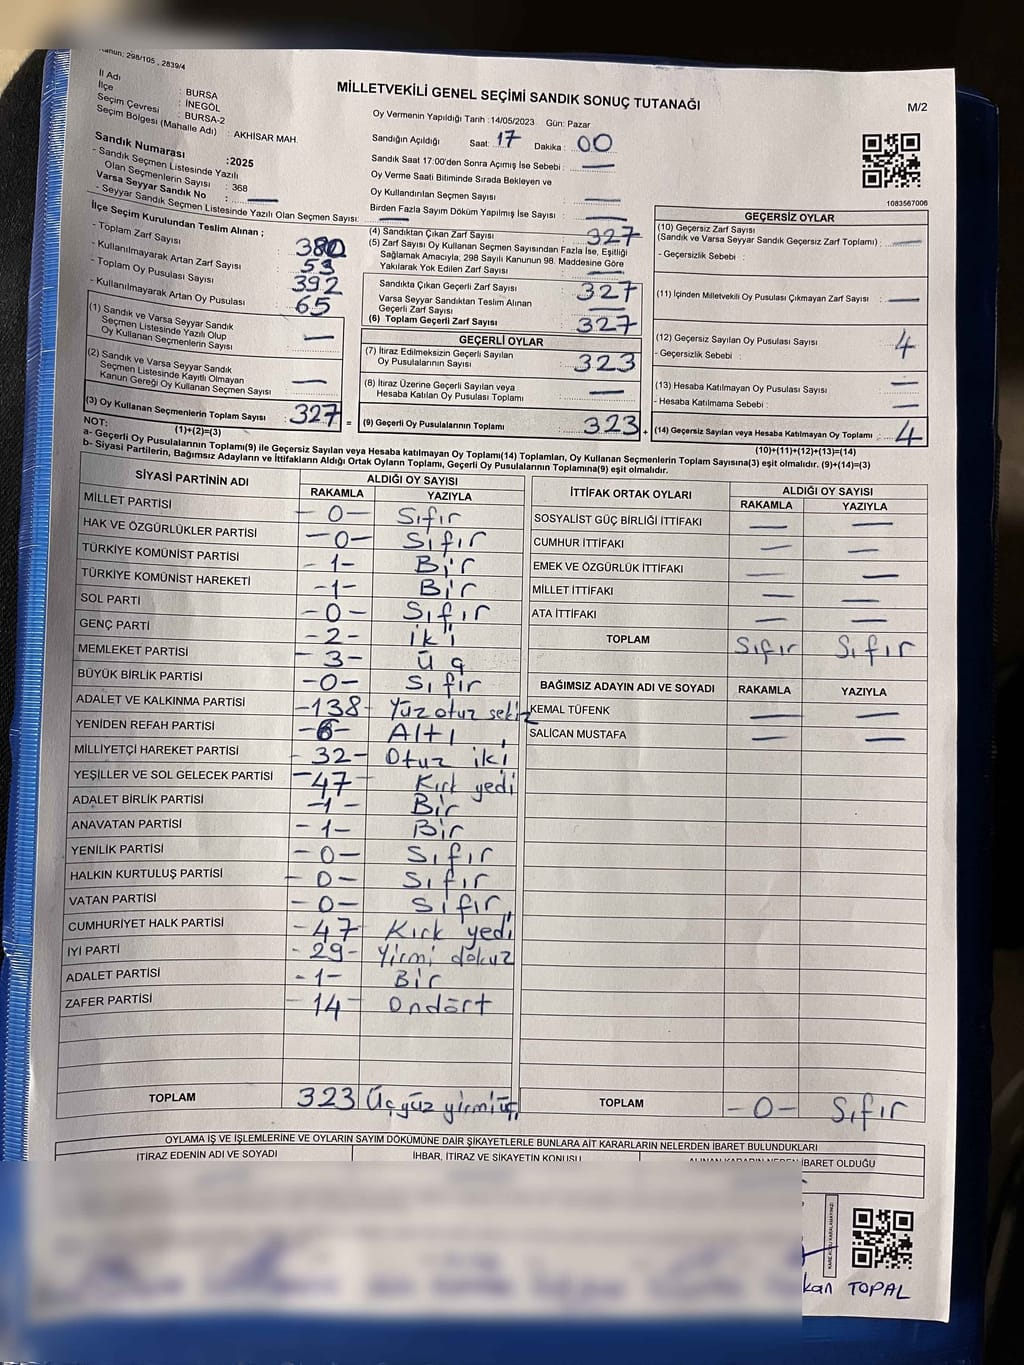 Kanun: 298/105, 2839/4
İl Adı : BURSA
İlçe : İNEGÖL
Seçim Çevresi : BURSA-2
Seçim Bölgesi (Mahalle Adı) : AKHİSAR MAH.
MİLLETVEKİLİ GENEL SEÇİMİ SANDIK SONUÇ TUTANAĞI
M/2
Oy Vermenin Yapıldığı Tarih :14/05/2023 Gün: Pazar
Sandığın Açıldığı Saat: 17 Dakika : 00
Sandık Saat 17:00'den Sonra Açımış İse Sebebi : —
Oy Verme Saati Bitiminde Sırada Bekleyen ve
Oy Kullandırılan Seçmen Sayısı : —
Birden Fazla Sayım Döküm Yapılmış İse Sayısı : —
1083567006
Sandık Numarası :2025
- Sandık Seçmen Listesinde Yazılı
Olan Seçmenlerin Sayısı : 368
Varsa Seyyar Sandık No : —
- Seyyar Sandık Seçmen Listesinde Yazılı Olan Seçmen Sayısı: —
İlçe Seçim Kurulundan Teslim Alınan ;
- Toplam Zarf Sayısı 380
- Kullanılmayarak Artan Zarf Sayısı 53
- Toplam Oy Pusulası Sayısı 392
- Kullanılmayarak Artan Oy Pusulası 65
(1) Sandık ve Varsa Seyyar Sandık
Seçmen Listesinde Yazılı Olup
Oy Kullanan Seçmenlerin Sayısı —
(2) Sandık ve Varsa Seyyar Sandık
Seçmen Listesinde Kayıtlı Olmayan
Kanun Gereği Oy Kullanan Seçmen Sayısı —
(3) Oy Kullanan Seçmenlerin Toplam Sayısı : 327
(1)+(2)=(3)
(4) Sandıktan Çıkan Zarf Sayısı 327
(5) Zarf Sayısı Oy Kullanan Seçmen Sayısından Fazla İse, Eşitliği
Sağlamak Amacıyla, 298 Sayılı Kanunun 98. Maddesine Göre
Yakılarak Yok Edilen Zarf Sayısı —
Sandıkta Çıkan Geçerli Zarf Sayısı : 327
Varsa Seyyar Sandıktan Teslim Alınan
Geçerli Zarf Sayısı : —
(6) Toplam Geçerli Zarf Sayısı : 327
GEÇERLİ OYLAR
(7) İtiraz Edilmeksizin Geçerli Sayılan
Oy Pusulalarının Sayısı : 323
(8) İtiraz Üzerine Geçerli Sayılan veya
Hesaba Katılan Oy Pusulası Toplamı : —
= (9) Geçerli Oy Pusulalarının Toplamı : 323 +
GEÇERSİZ OYLAR
(10) Geçersiz Zarf Sayısı
(Sandık ve Varsa Seyyar Sandık Geçersiz Zarf Toplamı) : —
- Geçersizlik Sebebi :
(11) İçinden Milletvekili Oy Pusulası Çıkmayan Zarf Sayısı : —
(12) Geçersiz Sayılan Oy Pusulası Sayısı : 4
- Geçersizlik Sebebi :
(13) Hesaba Katılmayan Oy Pusulası Sayısı : —
- Hesaba Katılmama Sebebi : —
(14) Geçersiz Sayılan veya Hesaba Katılmayan Oy Toplamı : 4
(10)+(11)+(12)+(13)=(14)
NOT:
a- Geçerli Oy Pusulalarının Toplamı(9) ile Geçersiz Sayılan veya Hesaba katılmayan Oy Toplamı(14) Toplamları, Oy Kullanan Seçmenlerin Toplam Sayısına(3) eşit olmalıdır. (9)+(14)=(3)
b- Siyasi Partilerin, Bağımsız Adayların ve İttifakların Aldığı Ortak Oyların Toplamı, Geçerli Oy Pusulalarının Toplamına(9) eşit olmalıdır.
SİYASİ PARTİNİN ADI ALDIĞI OY SAYISI
RAKAMLA YAZIYLA
MİLLET PARTİSİ - 0 - Sıfır
HAK VE ÖZGÜRLÜKLER PARTİSİ - 0 - Sıfır
TÜRKİYE KOMÜNİST PARTİSİ - 1 - Bir
TÜRKİYE KOMÜNİST HAREKETİ - 1 - Bir
SOL PARTİ - 0 - Sıfır
GENÇ PARTİ - 2 - iki
MEMLEKET PARTİSİ - 3 - Üç
BÜYÜK BİRLİK PARTİSİ - 0 - Sıfır
ADALET VE KALKINMA PARTİSİ - 138 - Yüz otuz sekiz
YENİDEN REFAH PARTİSİ - 6 - Altı
MİLLİYETÇİ HAREKET PARTİSİ - 32 - Otuz iki
YEŞİLLER VE SOL GELECEK PARTİSİ - 47 - Kırk yedi
ADALET BİRLİK PARTİSİ - 1 - Bir
ANAVATAN PARTİSİ - 1 - Bir
YENİLİK PARTİSİ - 0 - Sıfır
HALKIN KURTULUŞ PARTİSİ - 0 - Sıfır
VATAN PARTİSİ - 0 - Sıfır
CUMHURİYET HALK PARTİSİ - 47 - Kırk yedi
İYİ PARTİ - 29 - Yirmi dokuz
ADALET PARTİSİ - 1 - Bir
ZAFER PARTİSİ - 14 - Ondört
TOPLAM 323 Üçyüz yirmi üç
İTTİFAK ORTAK OYLARI ALDIĞI OY SAYISI
RAKAMLA YAZIYLA
SOSYALİST GÜÇ BİRLİĞİ İTTİFAKI — —
CUMHUR İTTİFAKI — —
EMEK VE ÖZGÜRLÜK İTTİFAKI — —
MİLLET İTTİFAKI — —
ATA İTTİFAKI — —
TOPLAM Sıfır Sıfır
BAĞIMSIZ ADAYIN ADI VE SOYADI RAKAMLA YAZIYLA
KEMAL TÜFENK — —
SALİCAN MUSTAFA — —
TOPLAM - 0 - Sıfır
OYLAMA İŞ VE İŞLEMLERİNE VE OYLARIN SAYIM DÖKÜMÜNE DAİR ŞİKAYETLERLE BUNLARA AİT KARARLARIN NELERDEN İBARET BULUNDUKLARI
İTİRAZ EDENİN ADI VE SOYADI İHBAR, İTİRAZ VE ŞİKAYETİN KONUSU ALINAN KARARIN NEDEN İBARET OLDUĞU
kan TOPAL